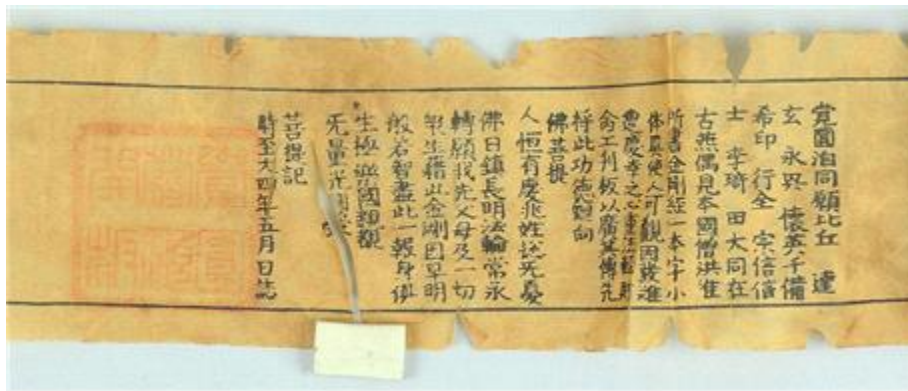 覚圓洎同願比丘 達
玄 永興 懷英 千備
希印 行全 宋信 信
士 李琦 田大同在
古燕偶見本國僧洪准
所書金剛経一本字小
使人可観因
慶幸之心
命工刊板以廣其傳先
将此功徳 向
佛菩提
人恒有慶兆姓悦无憂
佛日鎮長明法輪常永
轉願我先父母及一切
衆生藉此金剛因早明
般若智盡此一報身俱
生極樂國親覲
无量光
菩提記
時至大四年五月日誌